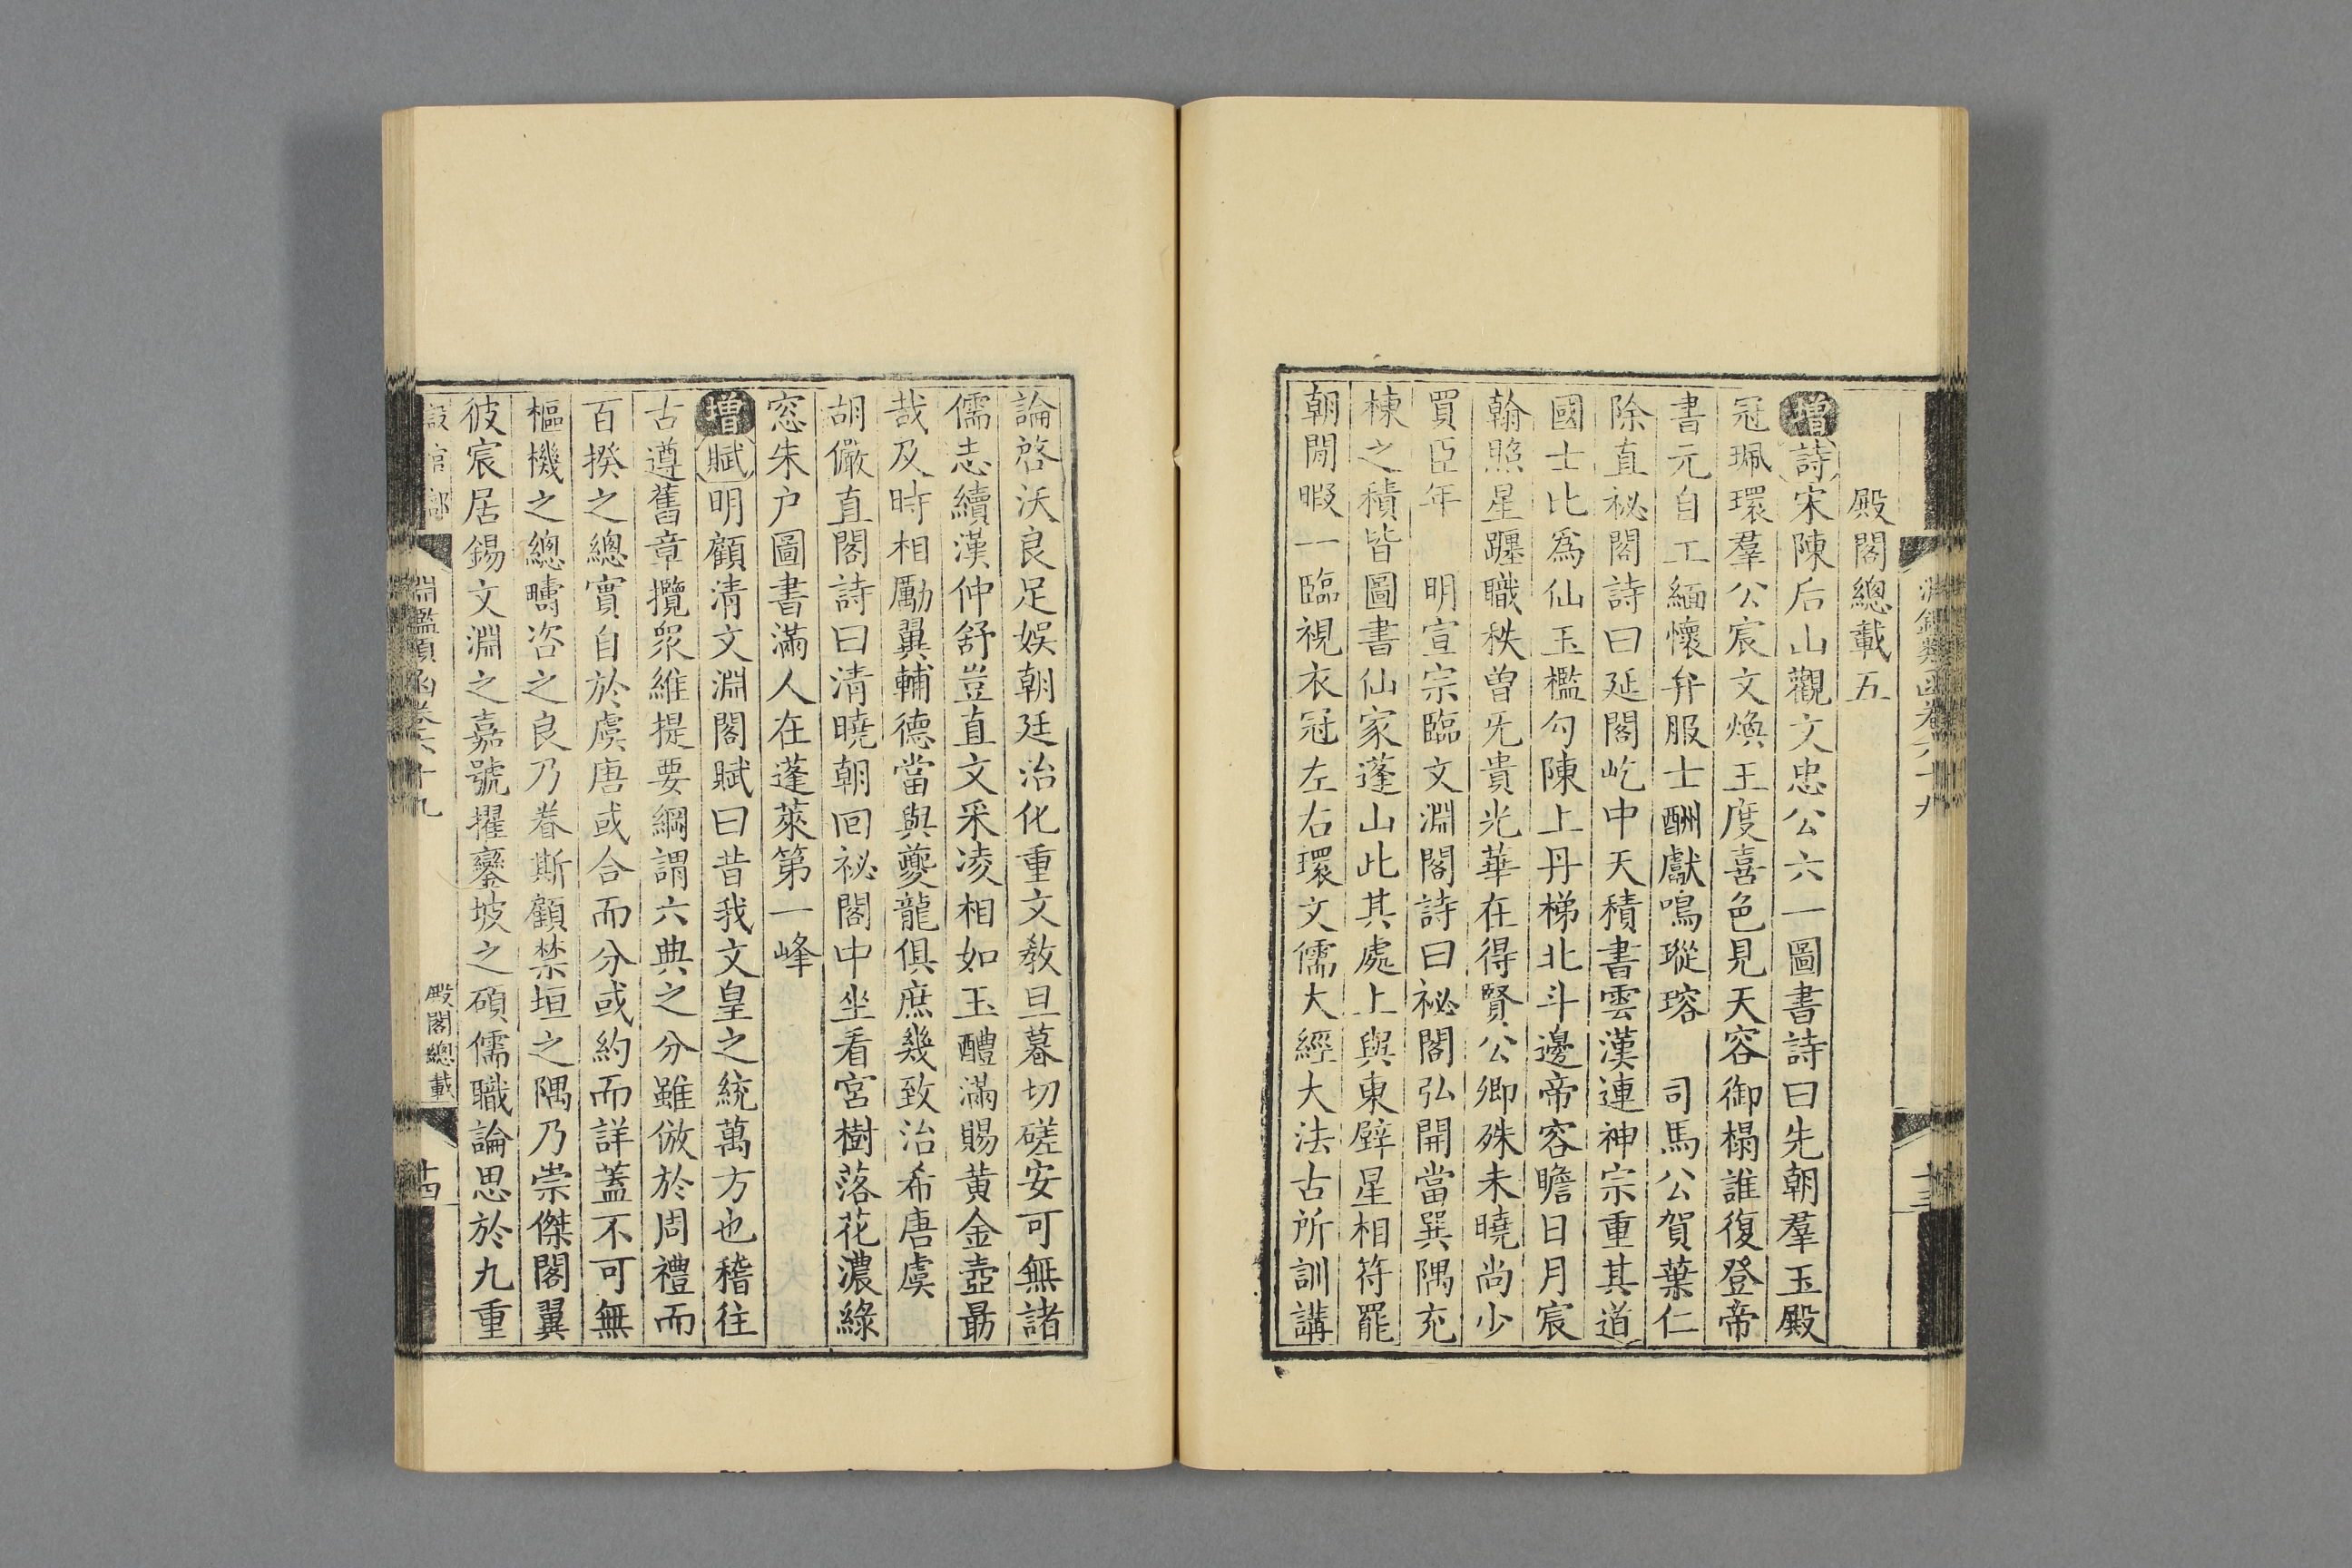 淵鑑類函卷六十九 十三
殿閣總載五
增詩宋陳后山觀文忠公六一圖書詩曰先朝羣玉殿
冠珮環羣公宸文煥王度喜色見天容御榻誰復登帝
書元自工緬懷弁服士酬獻鳴瑽瑢 司馬公賀葉仁
除直祕閣詩曰延閣屹中天積書雲漢連神宗重其道
國士比爲仙玉檻勾陳上丹梯北斗邊帝容瞻日月宸
翰照星躔職秩曾旡貴光華在得賢公卿殊未曉尚少
買臣年 明宣宗臨文淵閣詩曰祕閣弘開當巽隅充
棟之積皆圖書仙家蓬山此其處上與東壁星相符罷
朝閒暇一臨視衣冠左右環文儒大經大法古所訓講
論啓沃良足娛朝廷治化重文教旦暮切磋安可無諸
儒志續漢仲舒豈直文采凌相如玉醴滿賜黃金壺朂
哉及時相勵翼輔德當與夔龍俱庶幾致治希唐虞
胡儼直閣詩曰清曉朝回祕閣中坐看宮樹落花濃綠
窓朱户圖書滿人在蓬萊第一峰
增賦明顧清文淵閣賦曰昔我文皇之統萬方也稽往
古遵舊章攬眾維提要綱謂六典之分雖倣於周禮而
百揆之總實自於虞唐或合而分或約而詳蓋不可無
樞機之總疇咨之良乃眷斯顧禁垣之隅乃崇傑閣翼
彼宸居錫文淵之嘉號擢鑾坡之碩儒職論思於九重
淵鑑類函卷六十九 殿閣總載 十四